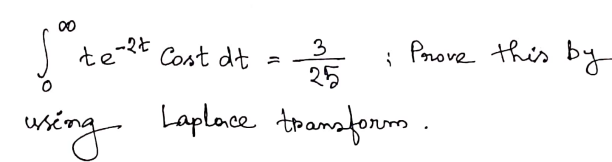 ∫₀^∞ te^{-2t} Cost dt = 3/25 ; Prove this by
using Laplace transform.